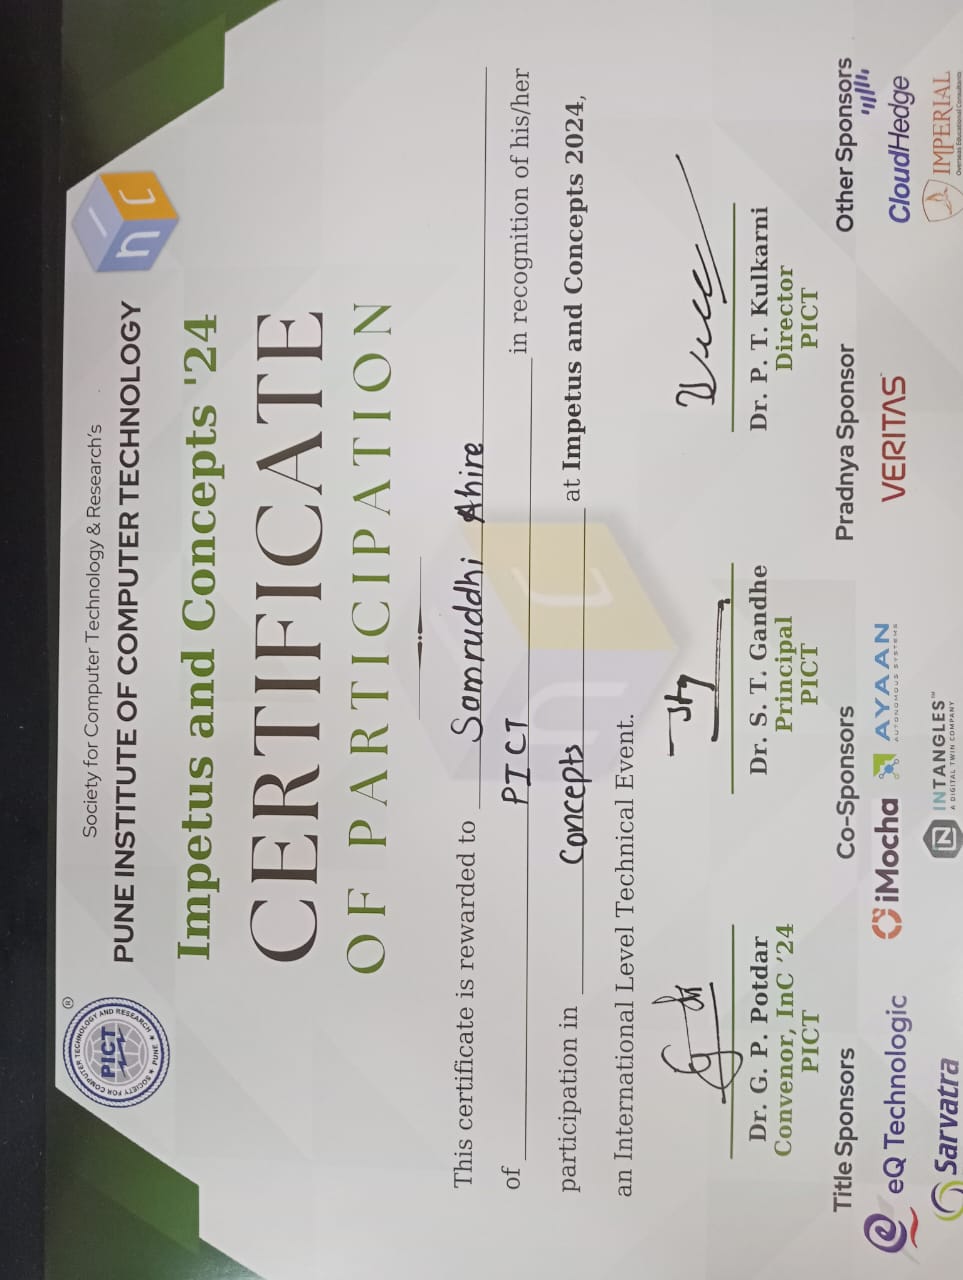 Society for Computer Technology & Research's
PUNE INSTITUTE OF COMPUTER TECHNOLOGY
SOCIETY FOR COMPUTER TECHNOLOGY AND RESEARCH ★ PUNE ★
PICT
®
InC
Impetus and Concepts '24
CERTIFICATE
OF PARTICIPATION
This certificate is rewarded to Samruddhi Ahire
of PICT in recognition of his/her
participation in Concepts at Impetus and Concepts 2024,
an International Level Technical Event.
Dr. G. P. Potdar
Convenor, InC '24
PICT
Dr. S. T. Gandhe
Principal
PICT
Dr. P. T. Kulkarni
Director
PICT
Title Sponsors
eQ Technologic
Sarvatra
Co-Sponsors
iMocha
AYAAN
AUTONOMOUS SYSTEMS
INTANGLES™
A DIGITAL TWIN COMPANY
Pradnya Sponsor
VERITAS™
Other Sponsors
CloudHedge
IMPERIAL
Overseas Educational Consultants